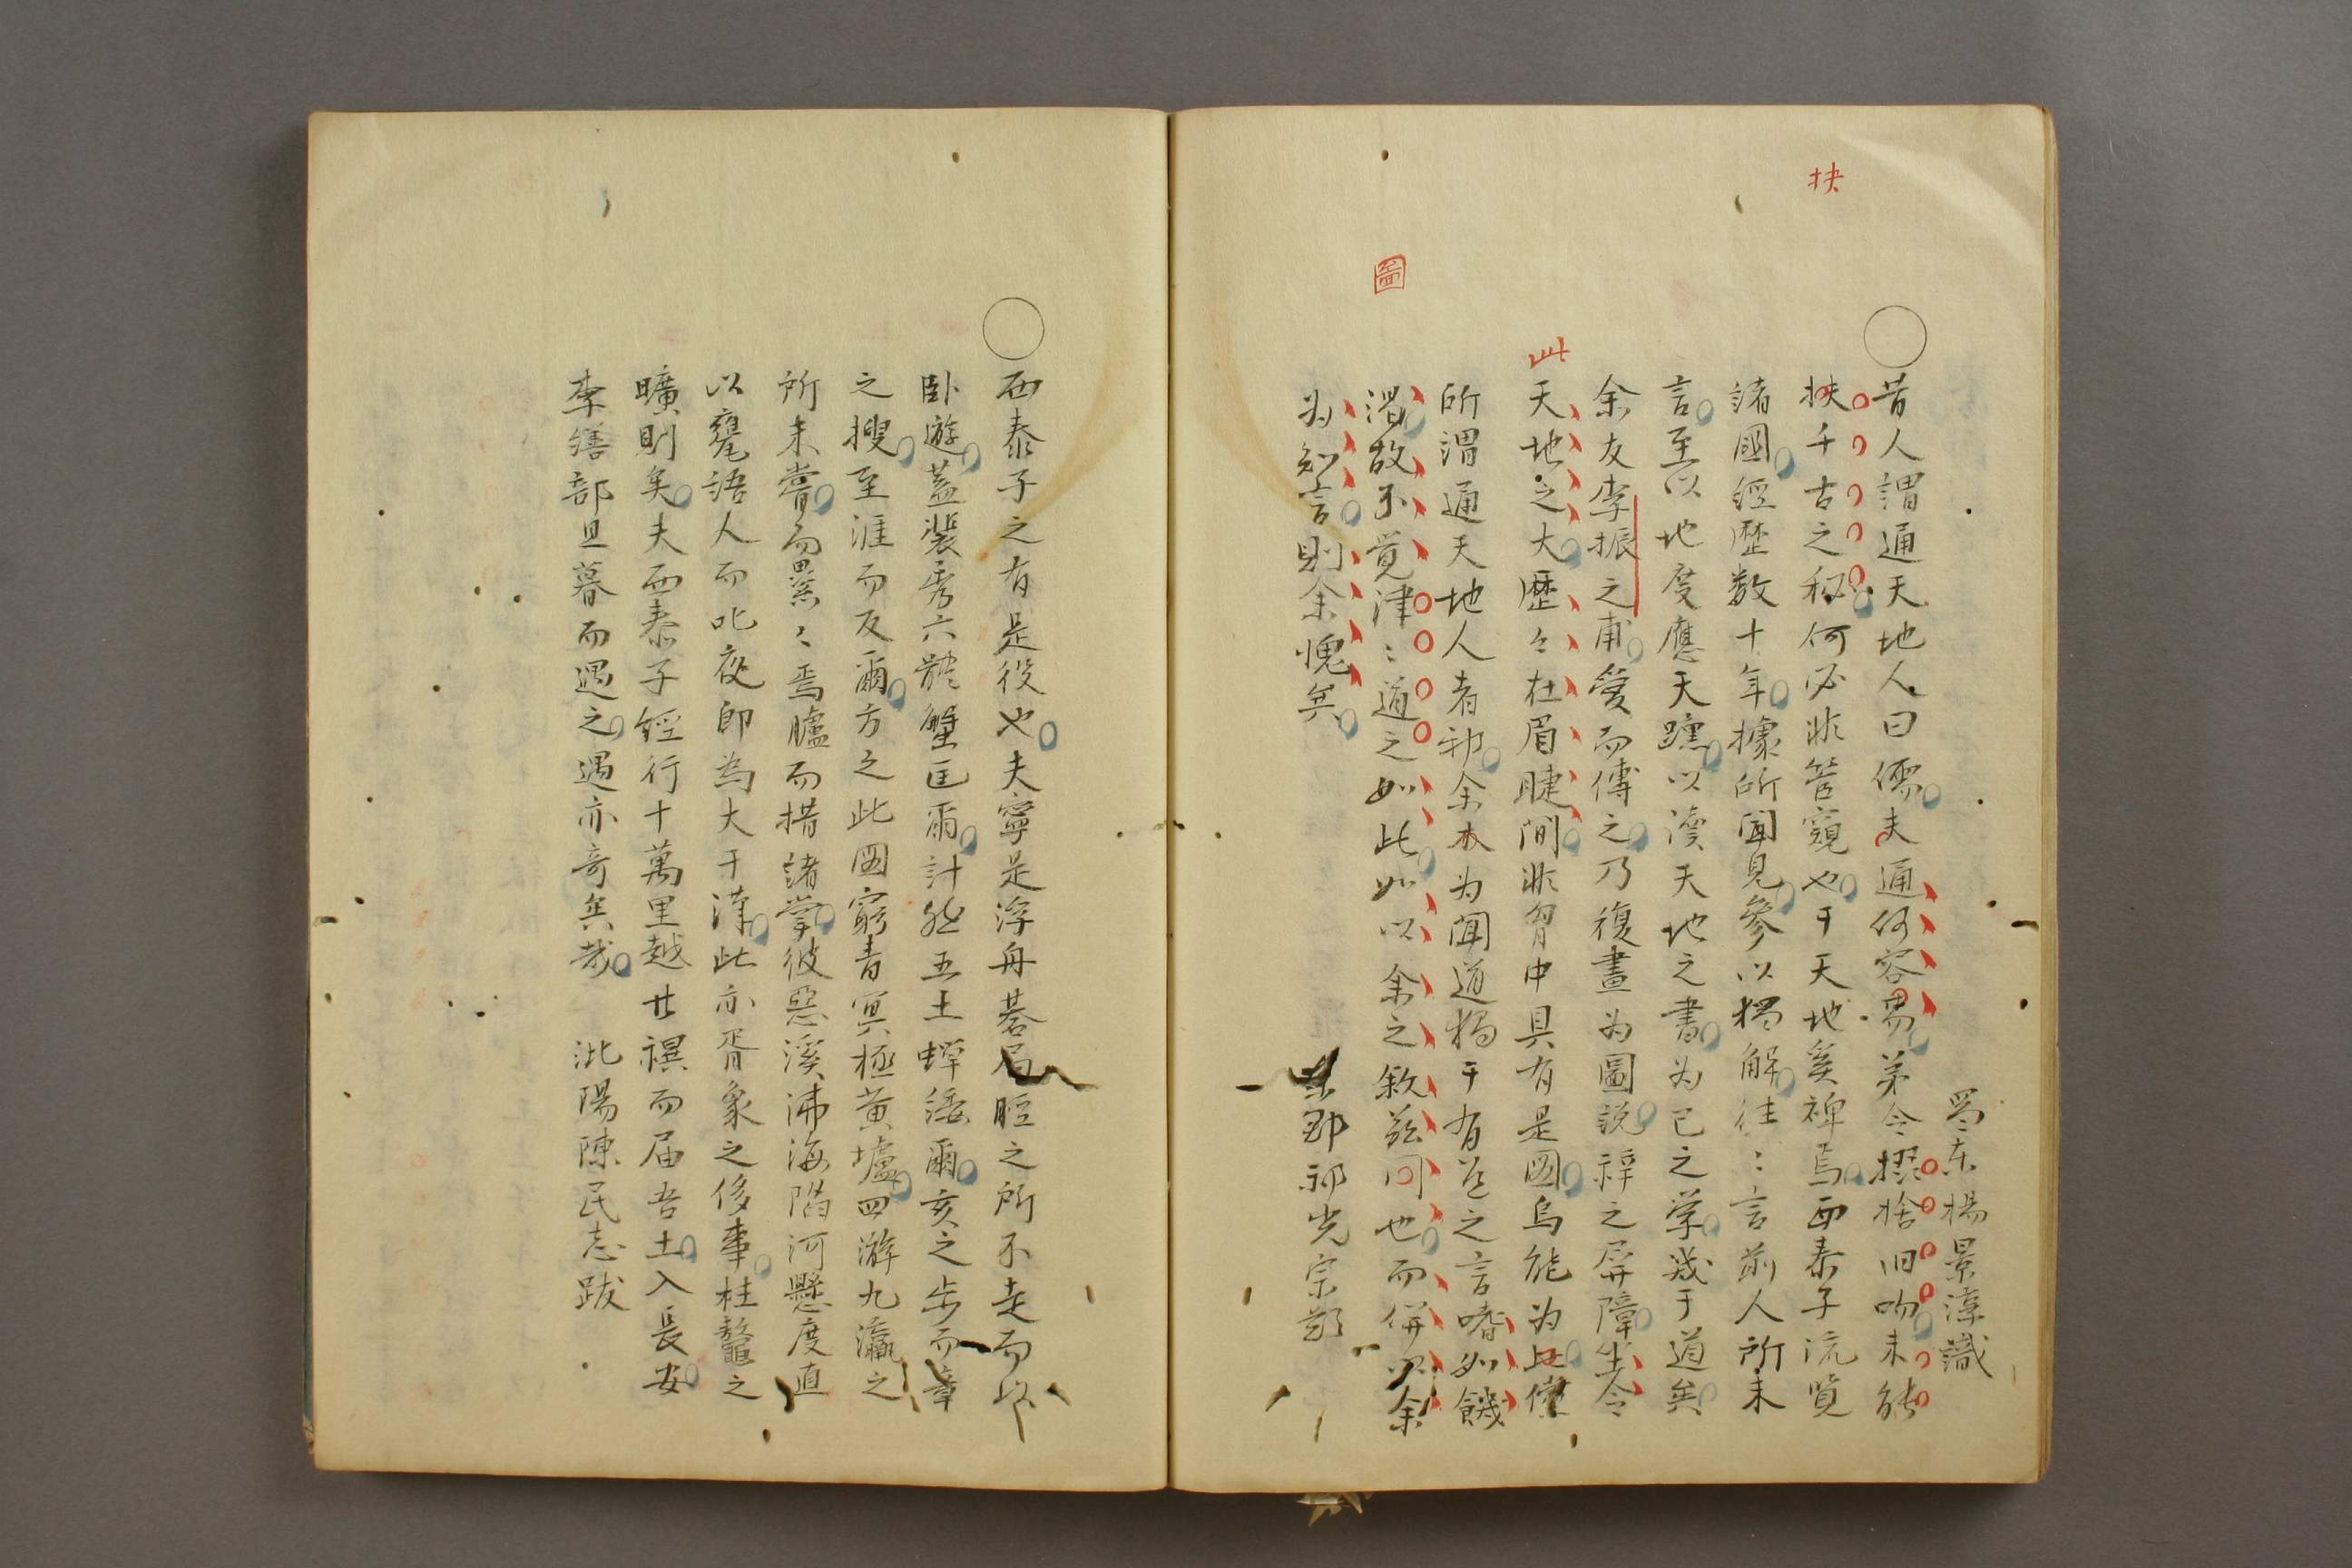 蜀東楊景淳識
昔人謂通天地人曰儒夫通何容易第令掇拾旧吻未能
抉
扶千古之秘何必非管窺也于天地奚裨焉西泰子流覽
諸國經歷数十年據所聞見參以獨解往〻言前人所未
言至以地度應天躔以讀天地之書为己之学幾于道矣
余友李振之甫愛而傳之乃復畫为圖説梓之屏障坐令
此天地之大歷々在眉睫間非胷中具有是圖烏能为此
所謂通天地人者耶余本为聞道獨于有道之言嗜如饑
圖
渴故不覚津〻道之如此如以余之敘茲同也而併以余
为知言則余愧矣
東郡祁光宗題
西泰子之有是役也夫寧是浮舟碁局胫之所不走而以
卧遊蓋裴秀六體蟹匡爾計然五土蟬緌爾亥之步而章
之搜至涯而反爾方之此圖窮青冥極黄壚四游九瀛之
所未嘗而罢〻焉臚而措諸掌彼惡溪沸海陷河懸度直
以甕語人而叱夜郎為大于漢此亦胥象之侈事桂鼇之
曠則矣夫西泰子經行十萬里越廿禩而届吾土入長安
李缮部旦暮而遇之遇亦奇矣哉　沘陽陳民志跋